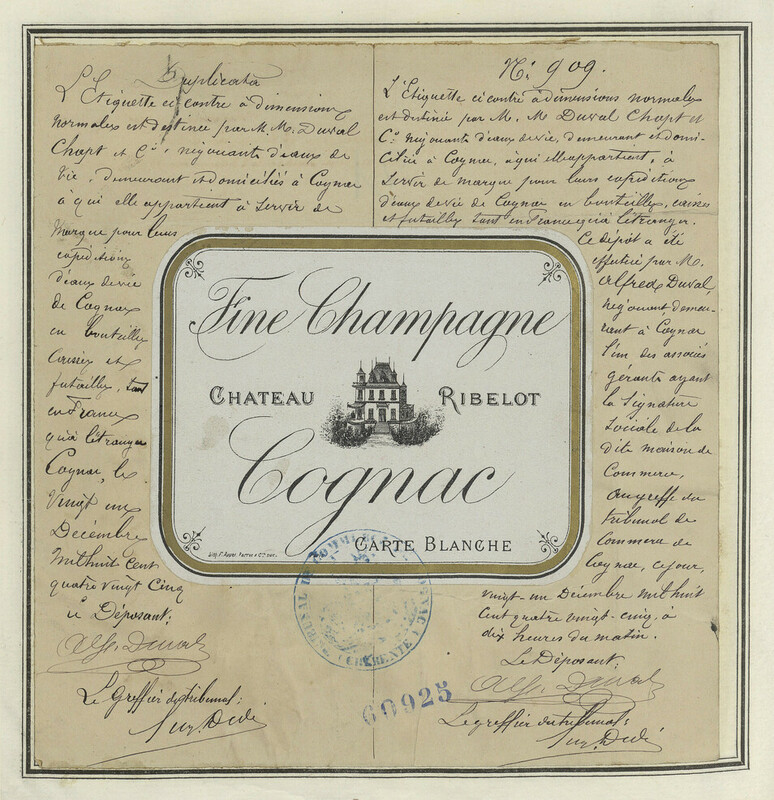 Duplicata
L'Etiquette ci contre à dimensions
normales est destinée par M. M. Duval
Chapt et Cie négociants d'eaux de
vie, demeurant et domiciliés à Cognac
à qui elle appartient à servir de
marque pour leurs
expéditions
d'eaux de vie
de Cognac
en bouteilles
caisses et
futailles, tant
en France
qu'à l'étranger
Cognac, le
vingt un
Décembre
mil huit cent
quatre vingt cinq
Le Déposant:
Alf. Duval
Le greffier du tribunal:
No 909.
L'Etiquette ci contre à dimensions normales
est destinée par M. M. Duval Chapt et
Cie négociants d'eaux de vie, demeurant et domi-
ciliés à Cognac, à qui elle appartient, à
servir de marque pour leurs expéditions
d'eaux de vie de Cognac en bouteilles, caisses
et futailles tant en France qu'à l'étranger.
Ce dépôt a été
effectué par M.
Alfred Duval,
négociant, demeu-
rant à Cognac
l'un des associés
gérants ayant
la signature
sociale de la
dite maison de
commerce,
au greffe du
tribunal de
commerce de
Cognac, ce jour,
vingt-un Décembre mil huit
cent quatre vingt-cinq, à
dix heures du matin.
Le Déposant:
Alf. Duval
Le greffier du tribunal:
Fine Champagne
CHATEAU RIBELOT
Cognac
CARTE BLANCHE
TRIBUNAL DE COMMERCE COGNAC
CHARENTE
60925